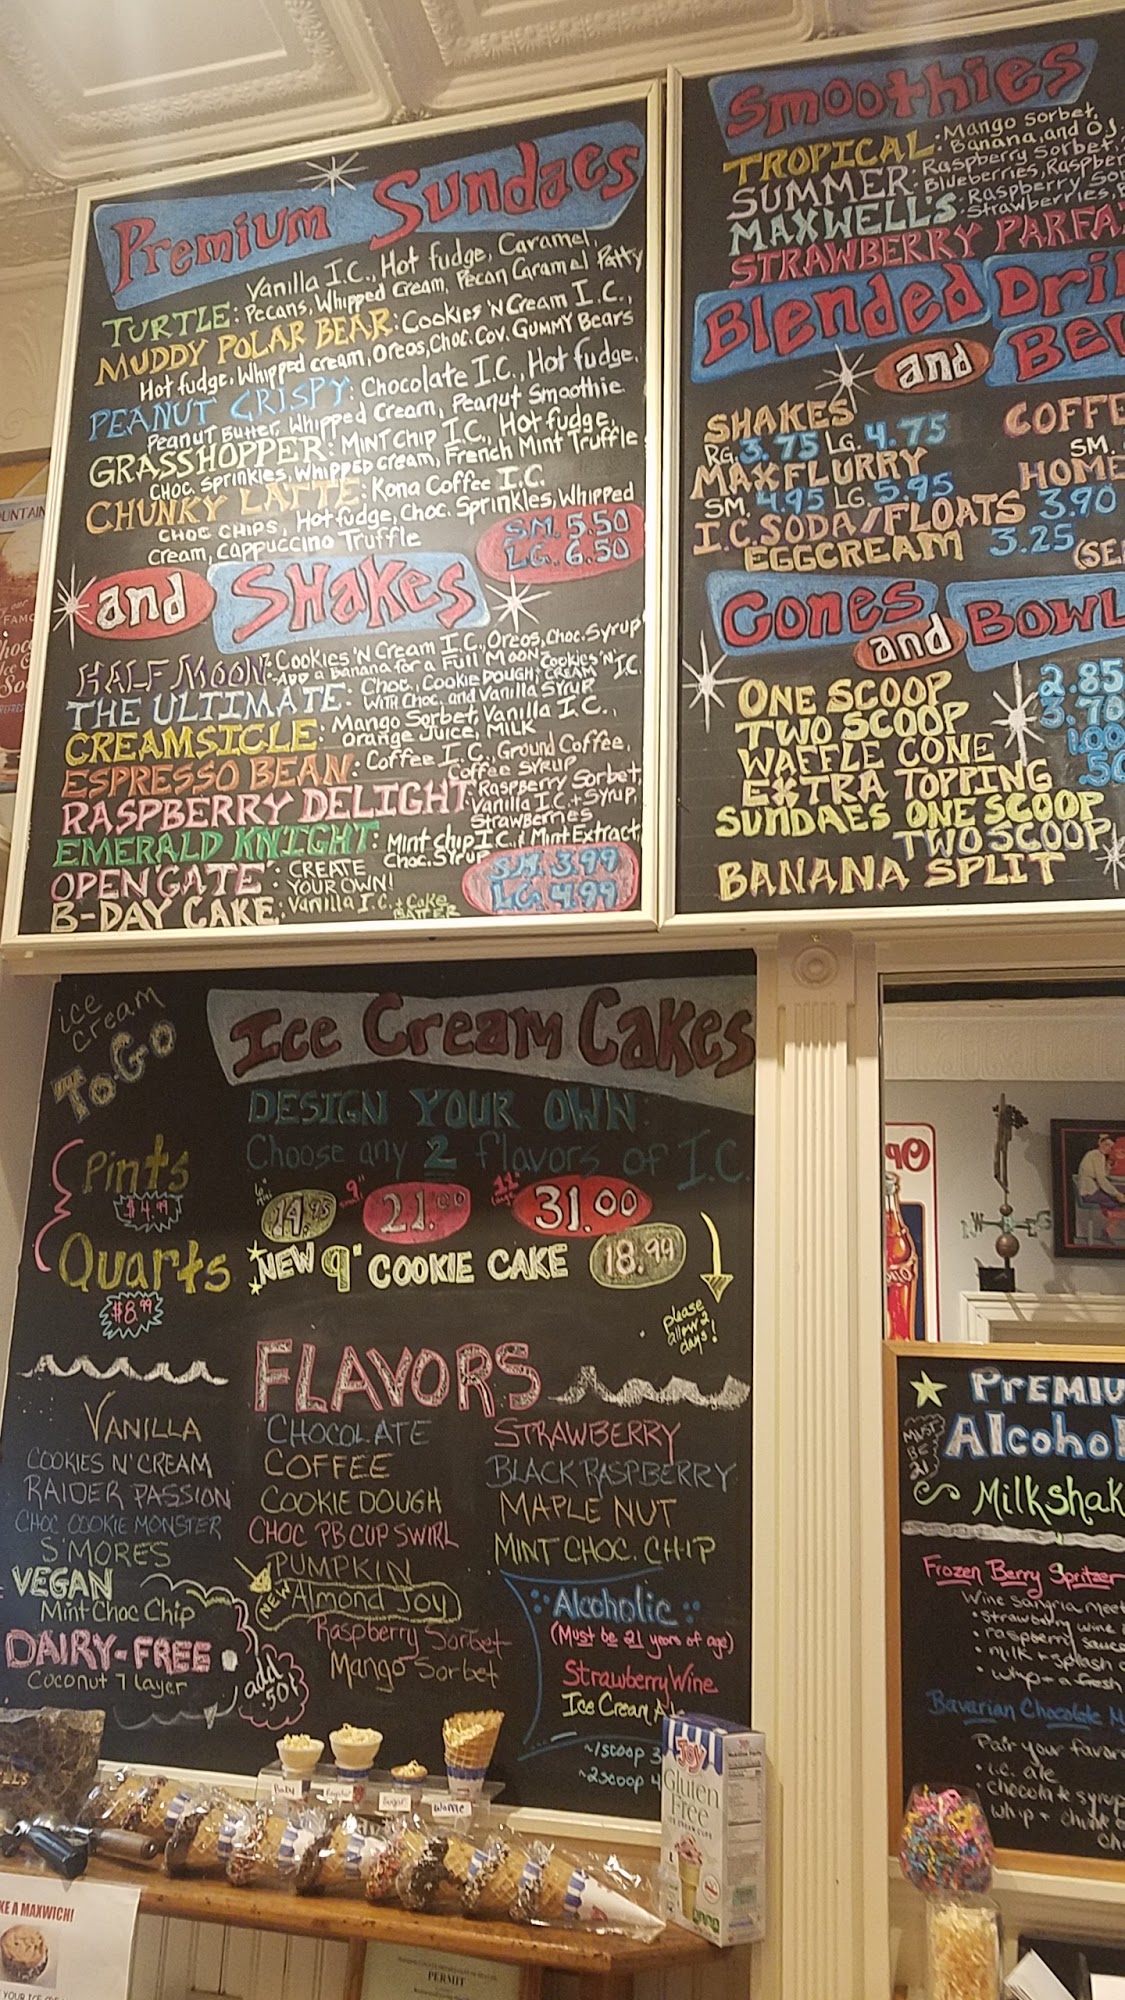 Premium Sundaes
Vanilla I.C., Hot fudge, Caramel,
TURTLE: Pecans, Whipped Cream, Pecan Caramel Patty
MUDDY POLAR BEAR: Cookies 'N Cream I.C.,
Hot fudge, Whipped cream, Oreos, Choc. Cov. GUMMY Bears
PEANUT CRISPY: Chocolate I.C., Hot fudge,
Peanut Butter, Whipped Cream, Peanut Smoothie
GRASSHOPPER: MINT CHIP I.C., Hot fudge,
CHOC. Sprinkles, Whipped cream, French Mint Truffle
CHUNKY LATTE: Kona Coffee I.C.
CHOC CHIPS, Hot fudge, Choc. Sprinkles, Whipped
Cream, Cappuccino Truffle
SM. 5.50
LG. 6.50
and SHAKES
HALF MOON: Cookies 'N Cream I.C., Oreos, Choc. Syrup
-ADD a Banana for a Full MOON-
THE ULTIMATE: Choc., Cookie DOUGH, Cookies 'N' CREAM I.C.
WITH CHOC. and Vanilla SYRUP
CREAMSICLE: Mango Sorbet, Vanilla I.C.,
Orange Juice, MILK
ESPRESSO BEAN: Coffee I.C., Ground Coffee,
Coffee SYRUP
RASPBERRY DELIGHT: Raspberry Sorbet,
Vanilla I.C. + Syrup,
Strawberries
EMERALD KNIGHT: Mint chip I.C., Mint Extract,
Choc. Syrup
OPEN GATE: CREATE
YOUR OWN!
B-DAY CAKE: Vanilla I.C. + Cake
BATTER
SM. 3.99
LG. 4.99
Smoothies
TROPICAL: Mango Sorbet,
Banana, and OJ.
SUMMER: Raspberry Sorbet,
Blueberries, Raspber
MAXWELL'S: Raspberry, Sor
Strawberries,
STRAWBERRY PARFA
Blended Dri
and Be
SHAKES
RG. 3.75 LG. 4.75
MAXFLURRY
SM. 4.95 LG. 5.95
I.C. SODA/FLOATS 3.90
EGGCREAM 3.25
COFFE
SM.
HOME
(SE
Cones and BOWL
ONE SCOOP 2.85
TWO SCOOP 3.70
WAFFLE CONE 1.00
EXTRA TOPPING .50
SUNDAES ONE SCOOP
TWO SCOOP
BANANA SPLIT
ice
cream
TO-GO
Pints
$4.99
Quarts
$8.99
Ice Cream Cakes
DESIGN YOUR OWN:
Choose any 2 flavors of I.C.
14.95
9" small 21.00
11" large 31.00
NEW 9" COOKIE CAKE 18.99
please
allow 2
days!
FLAVORS
VANILLA
COOKIES N' CREAM
RAIDER PASSION
CHOC COOKIE MONSTER
S'MORES
VEGAN
Mint Choc Chip
DAIRY-FREE
Coconut 7 layer
add
.50¢
CHOCOLATE
COFFEE
COOKIE DOUGH
CHOC PB CUP SWIRL
PUMPKIN
NEW Almond Joy
Raspberry Sorbet
Mango Sorbet
STRAWBERRY
BLACK RASPBERRY
MAPLE NUT
MINT CHOC. CHIP
Alcoholic
(Must be 21 years of age)
Strawberry Wine
Ice Cream
~1 scoop 3
~2 scoop 4
PrEMIU
Alcohol
MUST
BE
21
Milkshak
Frozen Berry Spritzer
Wine Sangria meet
• strawberry wine
• raspberry sauce
• milk + splash
• whip + a fresh
Bavarian Chocolate M
Pair your favor
• i.c. ale
• chocolate syrup
whip + chunk
Cho
Baby
Sugar
Waffle
JOY
Gluten
Free
ICE CREAM CUPS
KE A MAXWICH!
YOUR ICE
PERMIT
OUNTAIN
FAMO
W
G